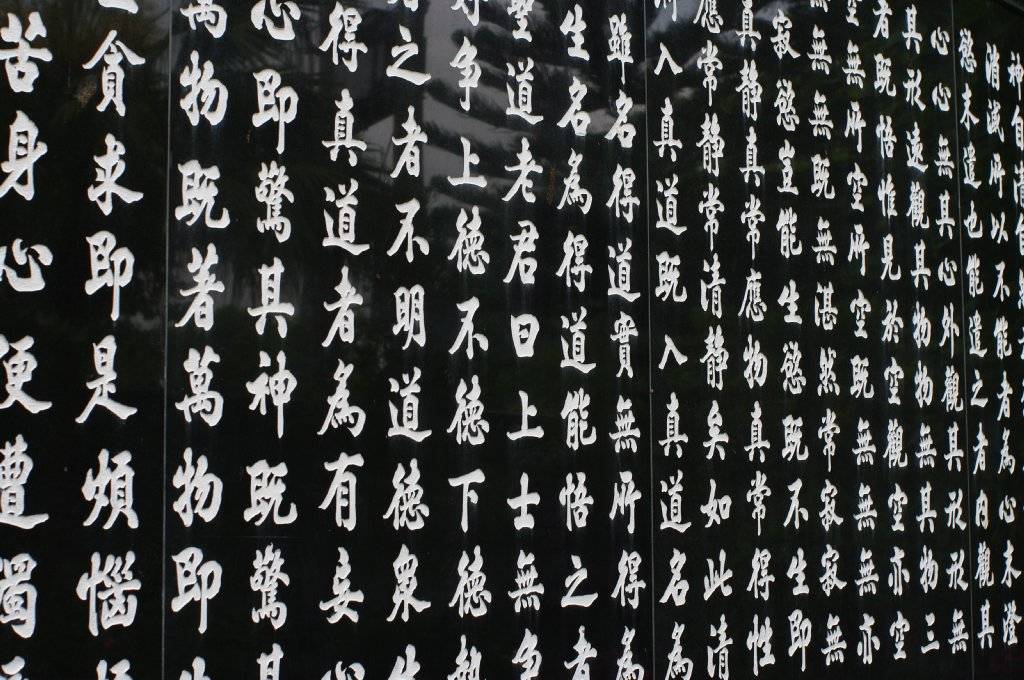 神自
消滅所以不能者為心未澄
慾未遣也能遣之者內觀其
心心無其心外觀其形形無
其形遠觀其物物無其物三
者既悟惟見於空觀空亦空
空無所空所空既無無無亦
無無既無湛然常寂寂無
寂慾豈能生慾既不生即
真靜真常應物真常得性
應常靜常清靜矣如此清
入真道既入真道名為
雖名得道實無所得為
生名為得道能悟之者
聖道老君曰上士無爭
好爭上德不德下德執
之者不明道德眾生
得真道者為有妄心
心即驚其神既驚其
萬物既著萬物即生
貪求即是煩惱煩
苦身心便遭濁